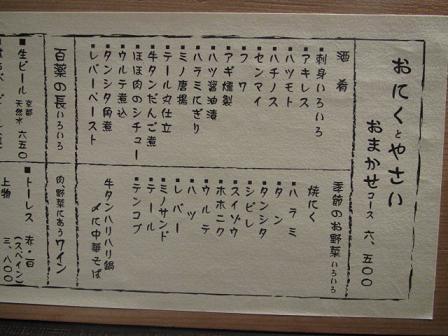 おにくとやさい
おまかせコース 六、五〇〇
季節のお野菜いろいろ
酒肴
■刺身いろいろ
■アキレス
■ハツモト
■ハチノス
■センマイ
■フワ
■アギ燻製
■ハツ醤油漬
■ハラミにぎり
■ミノ唐揚
■テール丸仕立
■牛タンだんご煮
■ほほ肉のシチュー
■ウルテ煮込
■タンシタ角煮
■レバーペースト
焼にく
■ハラミ
■タン
■タンシタ
■シビレ
■スイゾウ
■ホホニク
■ウルテ
■ハツ
■レバー
■ミノサンド
■テール
■テンコブ
牛タンハリハリ鍋
〆に中華そば
百薬の長いろいろ
■生ビール 京都 天然水 六五〇
肉野菜にあうワイン
■トーレス 赤・白
(スペイン) 三、八〇〇
上物